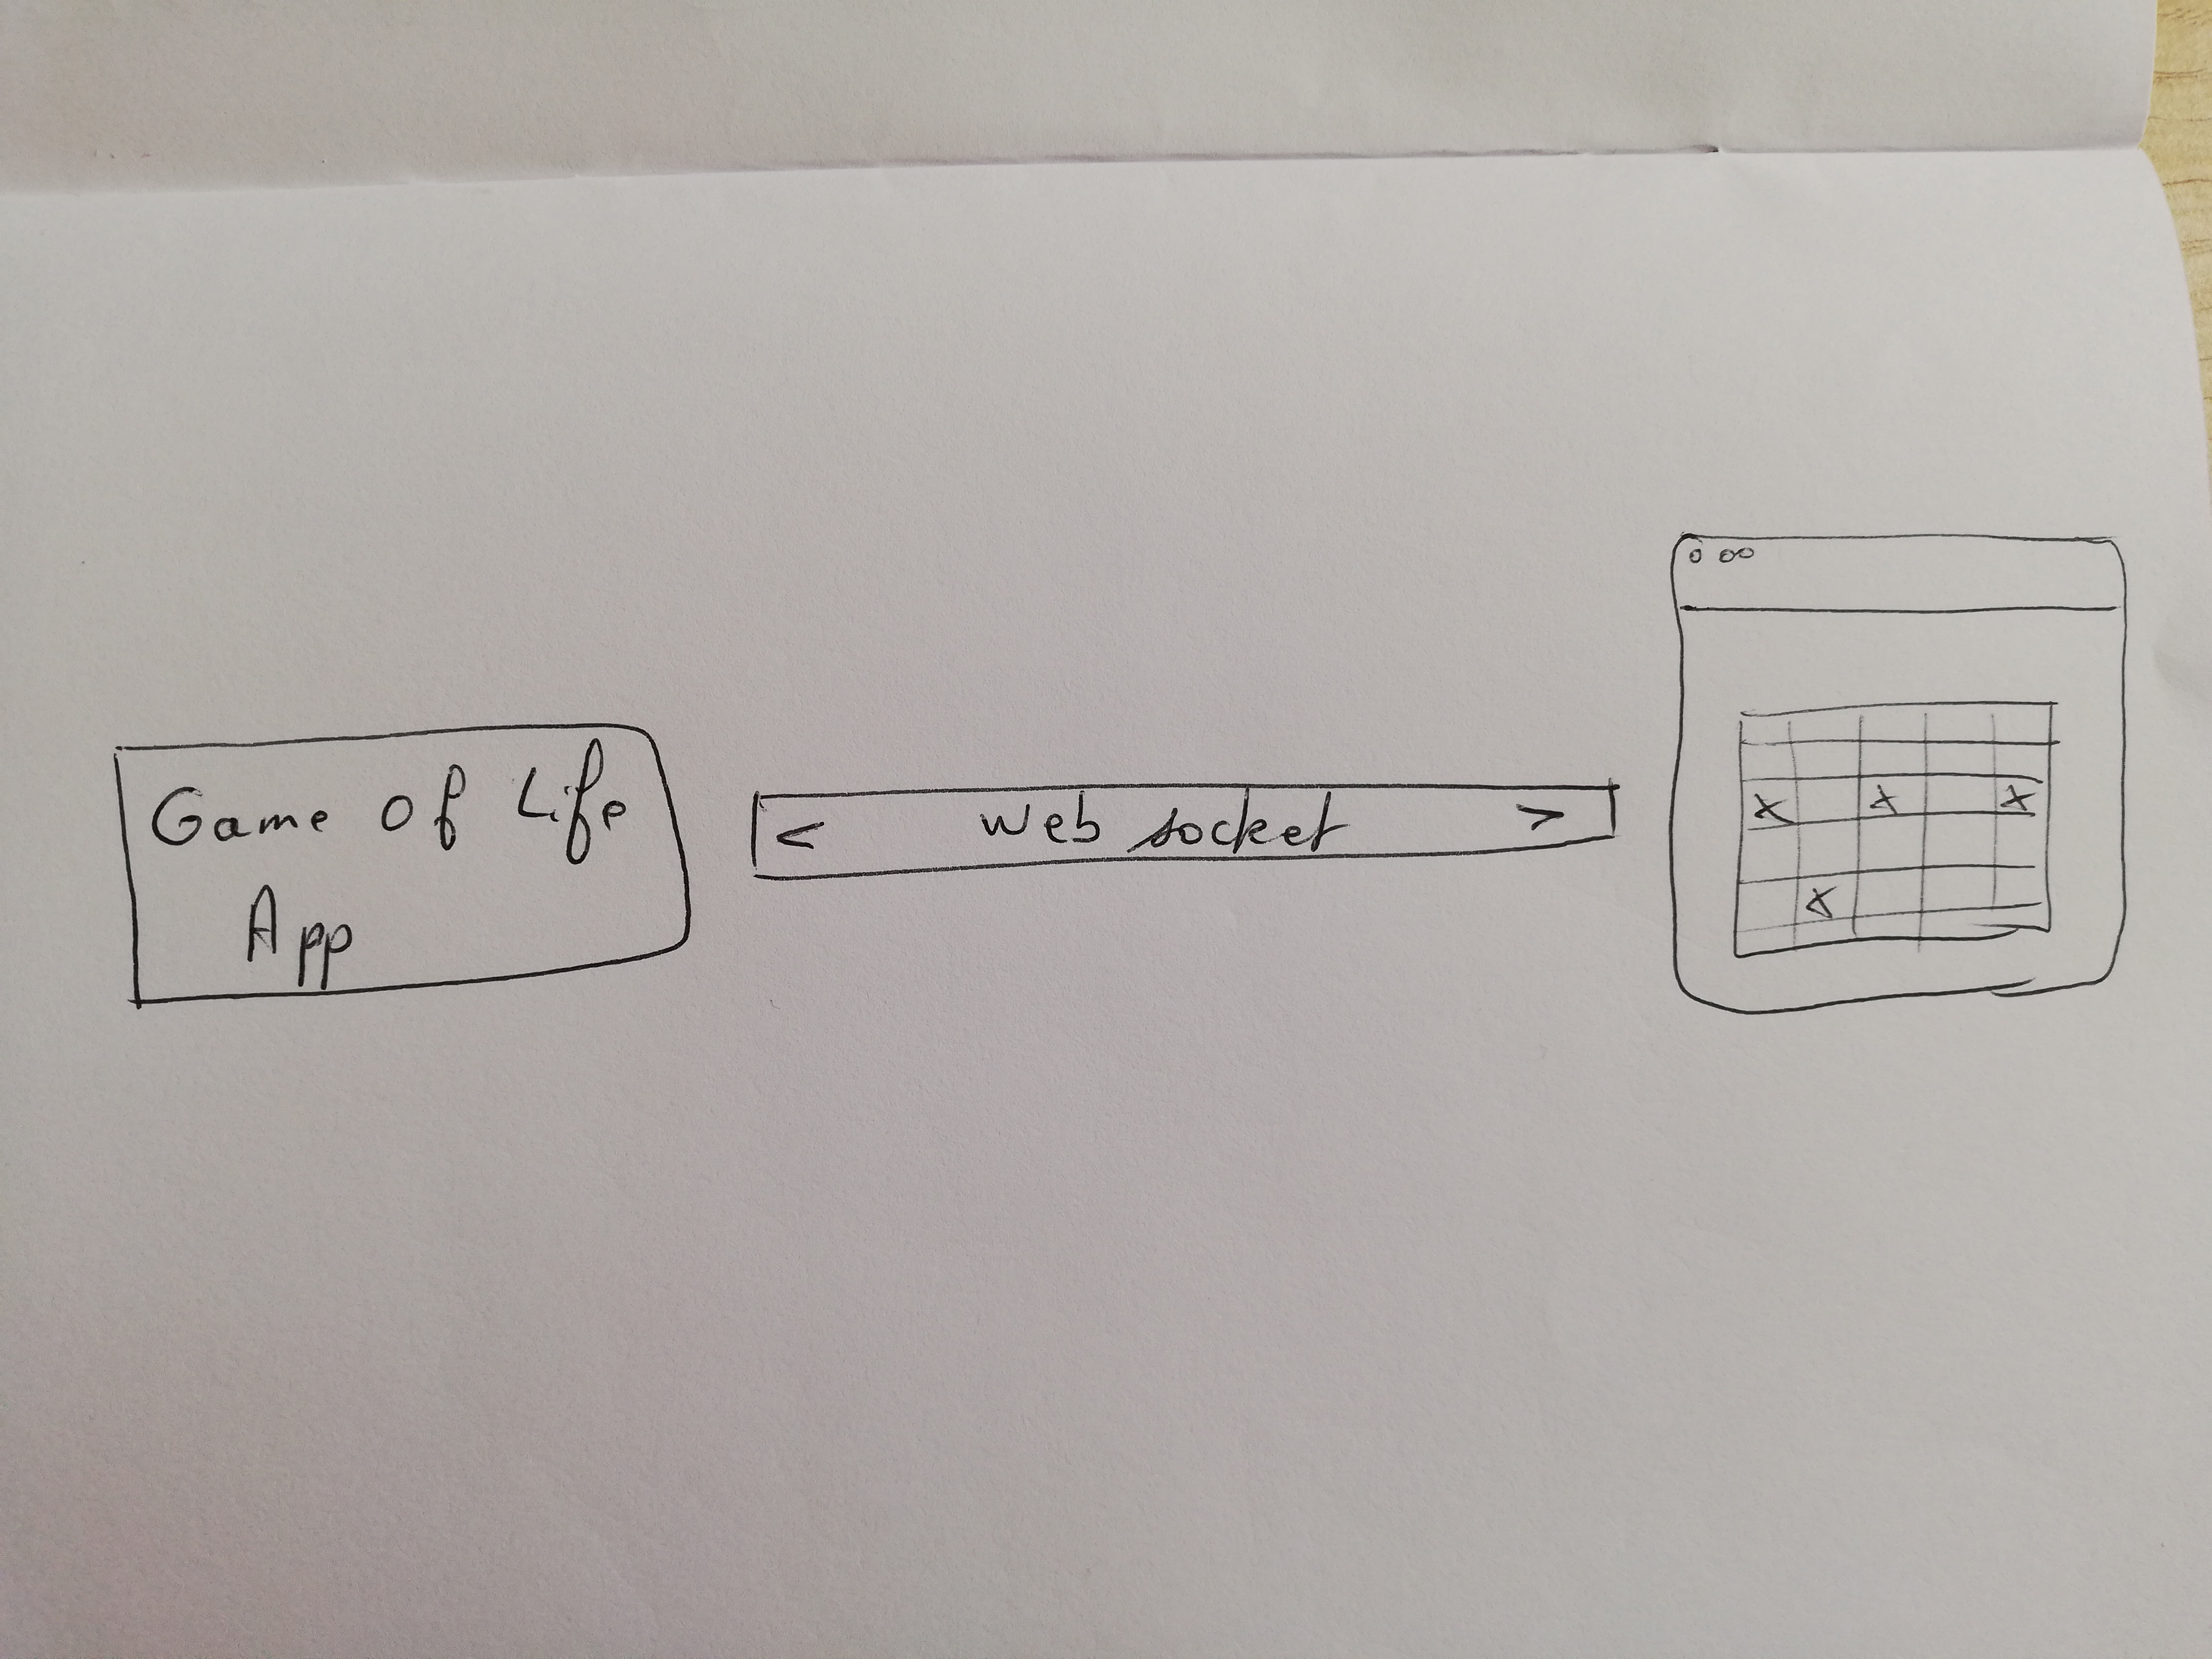 Game of Life
App
< Web socket >
x x x
x